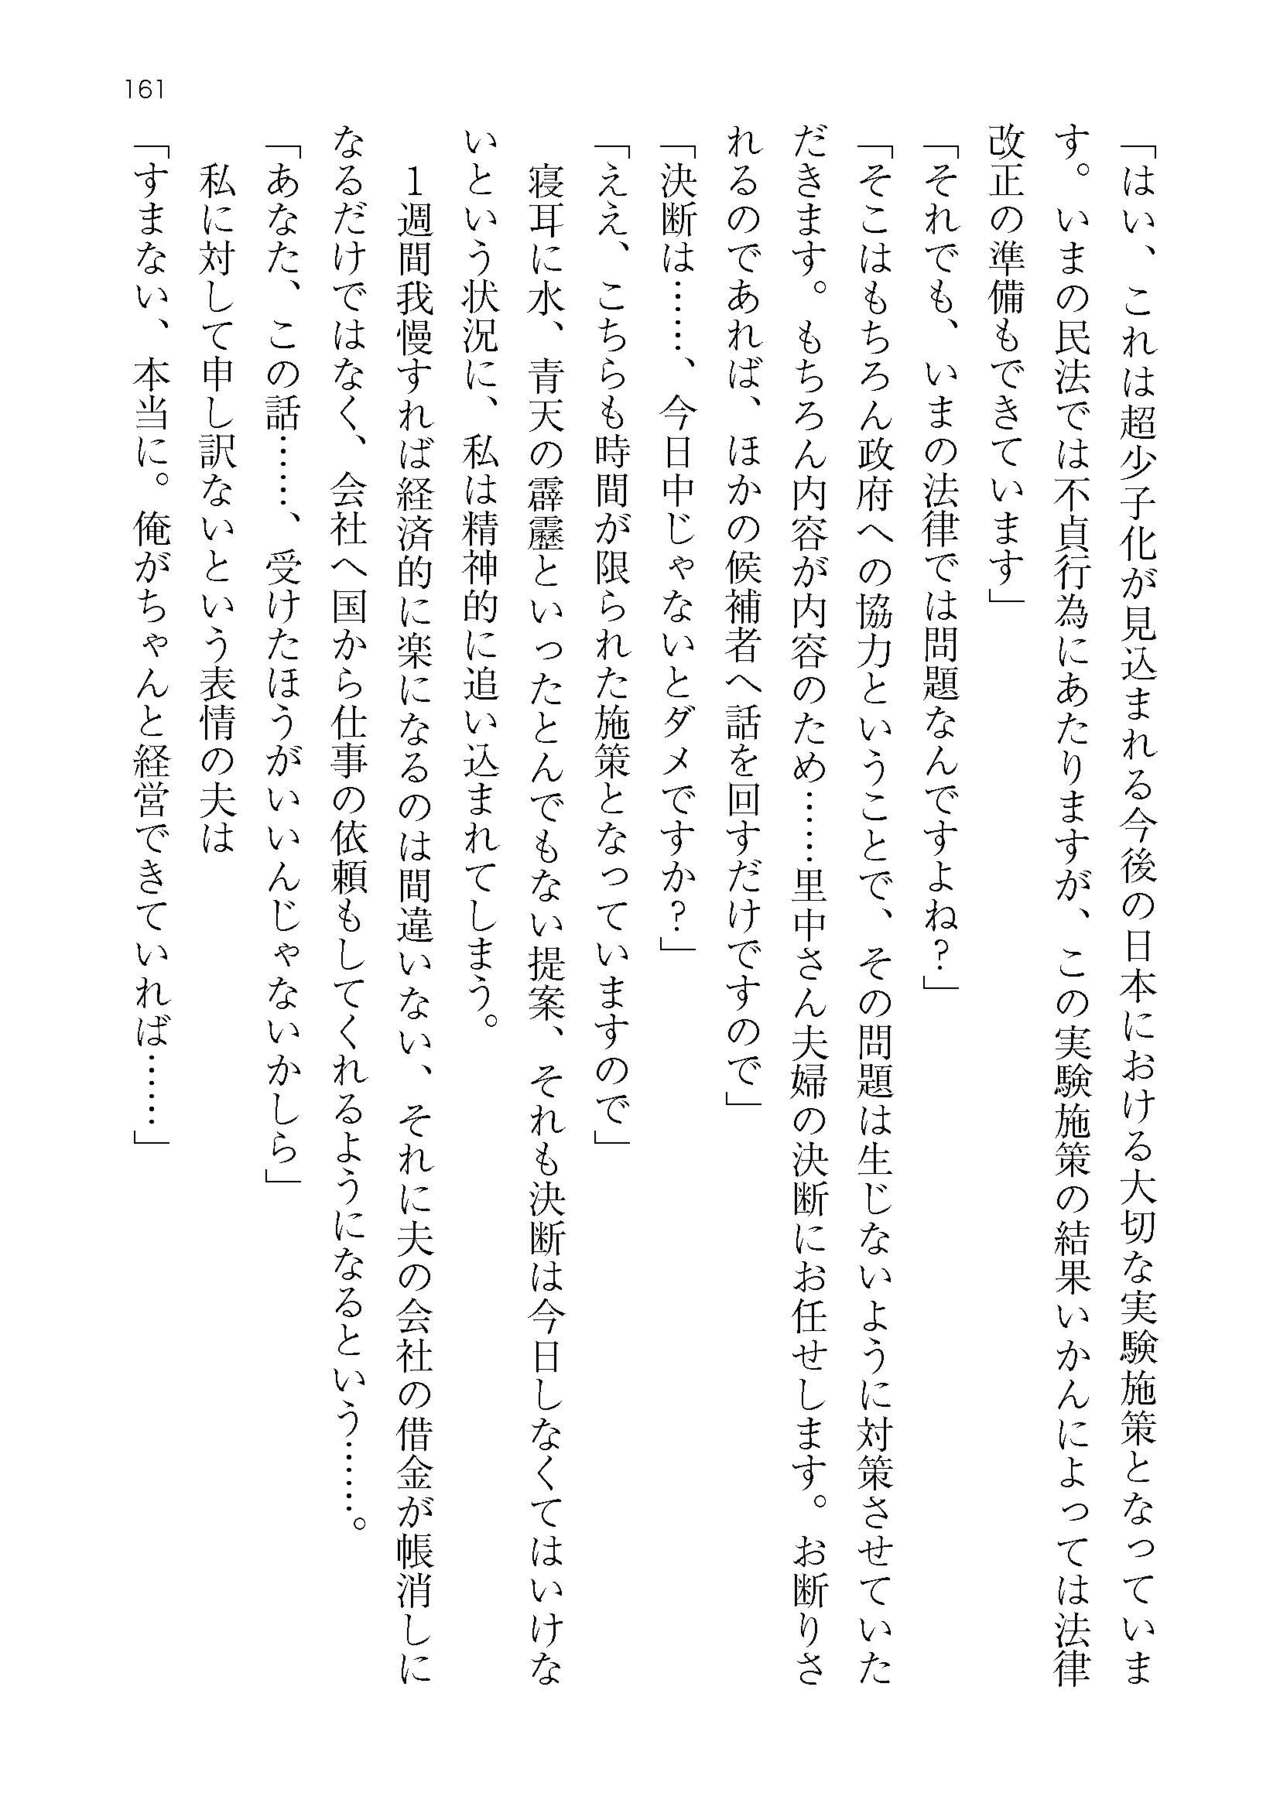 161
「はい、これは超少子化が見込まれる今後の日本における大切な実験施策となっていま
す。いまの民法では不貞行為にあたりますが、この実験施策の結果いかんによっては法律
改正の準備もできています」
「それでも、いまの法律では問題なんですよね?」
「そこはもちろん政府への協力ということで、その問題は生じないように対策させていた
だきます。もちろん内容が内容のため……里中さん夫婦の決断にお任せします。お断りさ
れるのであれば、ほかの候補者へ話を回すだけですので」
「決断は……、今日中じゃないとダメですか?」
「ええ、こちらも時間が限られた施策となっていますので」
　寝耳に水、青天の霹靂といったとんでもない提案、それも決断は今日しなくてはいけな
いという状況に、私は精神的に追い込まれてしまう。
　1週間我慢すれば経済的に楽になるのは間違いない、それに夫の会社の借金が帳消しに
なるだけではなく、会社へ国から仕事の依頼もしてくれるようになるという……。
「あなた、この話……、受けたほうがいいんじゃないかしら」
　私に対して申し訳ないという表情の夫は
「すまない、本当に。俺がちゃんと経営できていれば……」